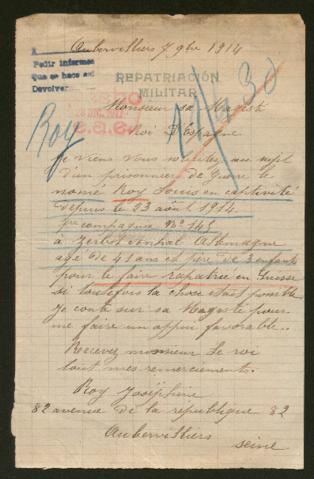 Aubervilliers 7 9bre 1914
Pedir informes
Que se hace así
Devolver
REPATRIACIÓN
MILITAR
Monsieur sa Magesté
Roi d'Espagne
Roy
Je viens vous solicites au sujet
d'un prisonnier de guerre le
nomé Roy Louis en captivité
depuis le 23 août 1914.
compagnie No 145
a Zerbst Allemagne
agé de 41 ans et père de 3 enfants
pour le faire rapatrieé en Suisse
si toutefois la chose etait possible
Je conte sur sa Magesté pour
me faire un appui favorable..
Recevez monsieur Le roi
tout mes remerciements.
Roy Joséphine
82 avenue de la république 82
Aubervilliers
seine